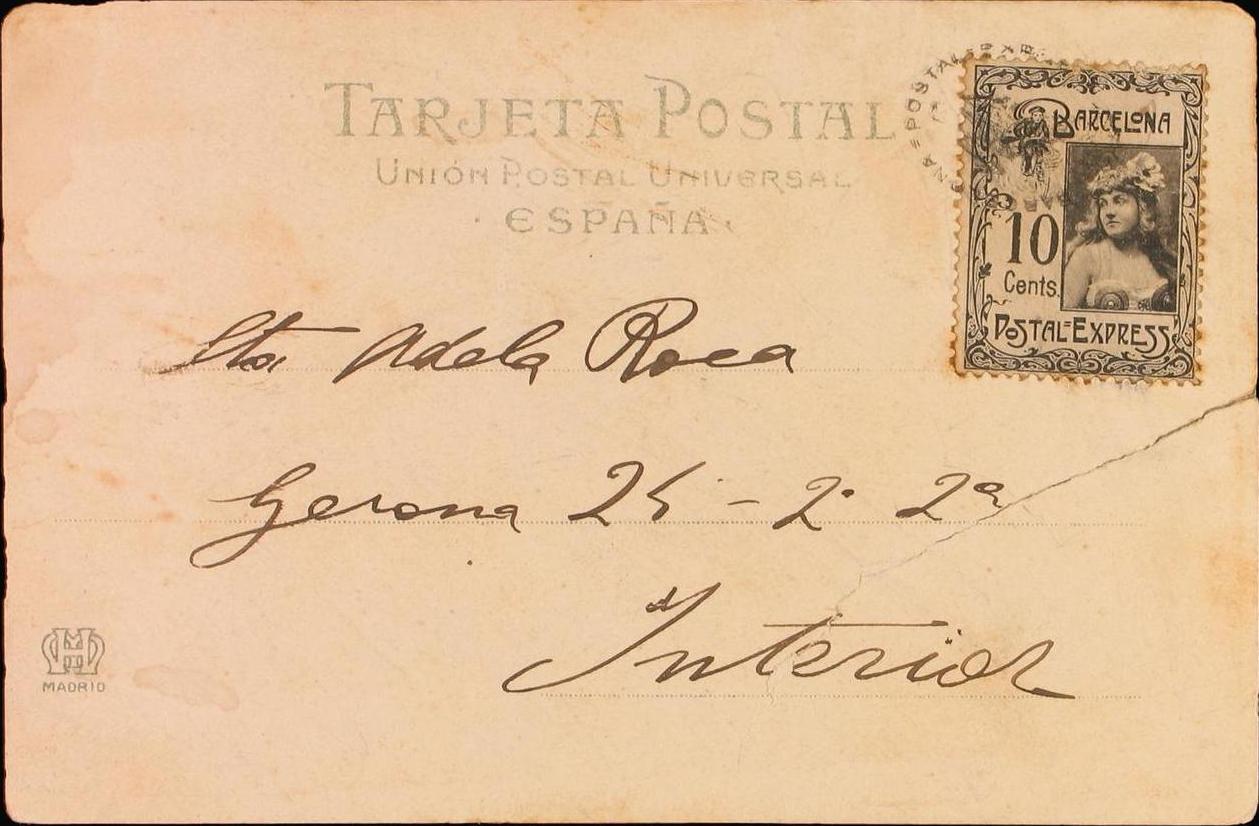 TARJETA POSTAL
UNIÓN POSTAL UNIVERSAL
· ESPAÑA ·
BARCELONA
10
Cents.
POSTAL-EXPRESS
Sta Adela Roca
Gerona 25 - 2º 2ª
Interior
MADRID